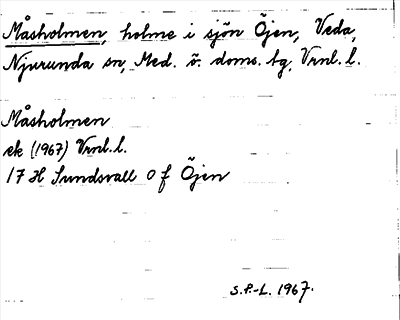 Måsholmen, holme i sjön Öjen, Veda,
Njurunda sn, Med. ö. doms. tg, Vrnl. l.
Måsholmen
ek (1967) Vrnl. l.
17 H Sundsvall 0 f Öjen
S.P.-L. 1967.